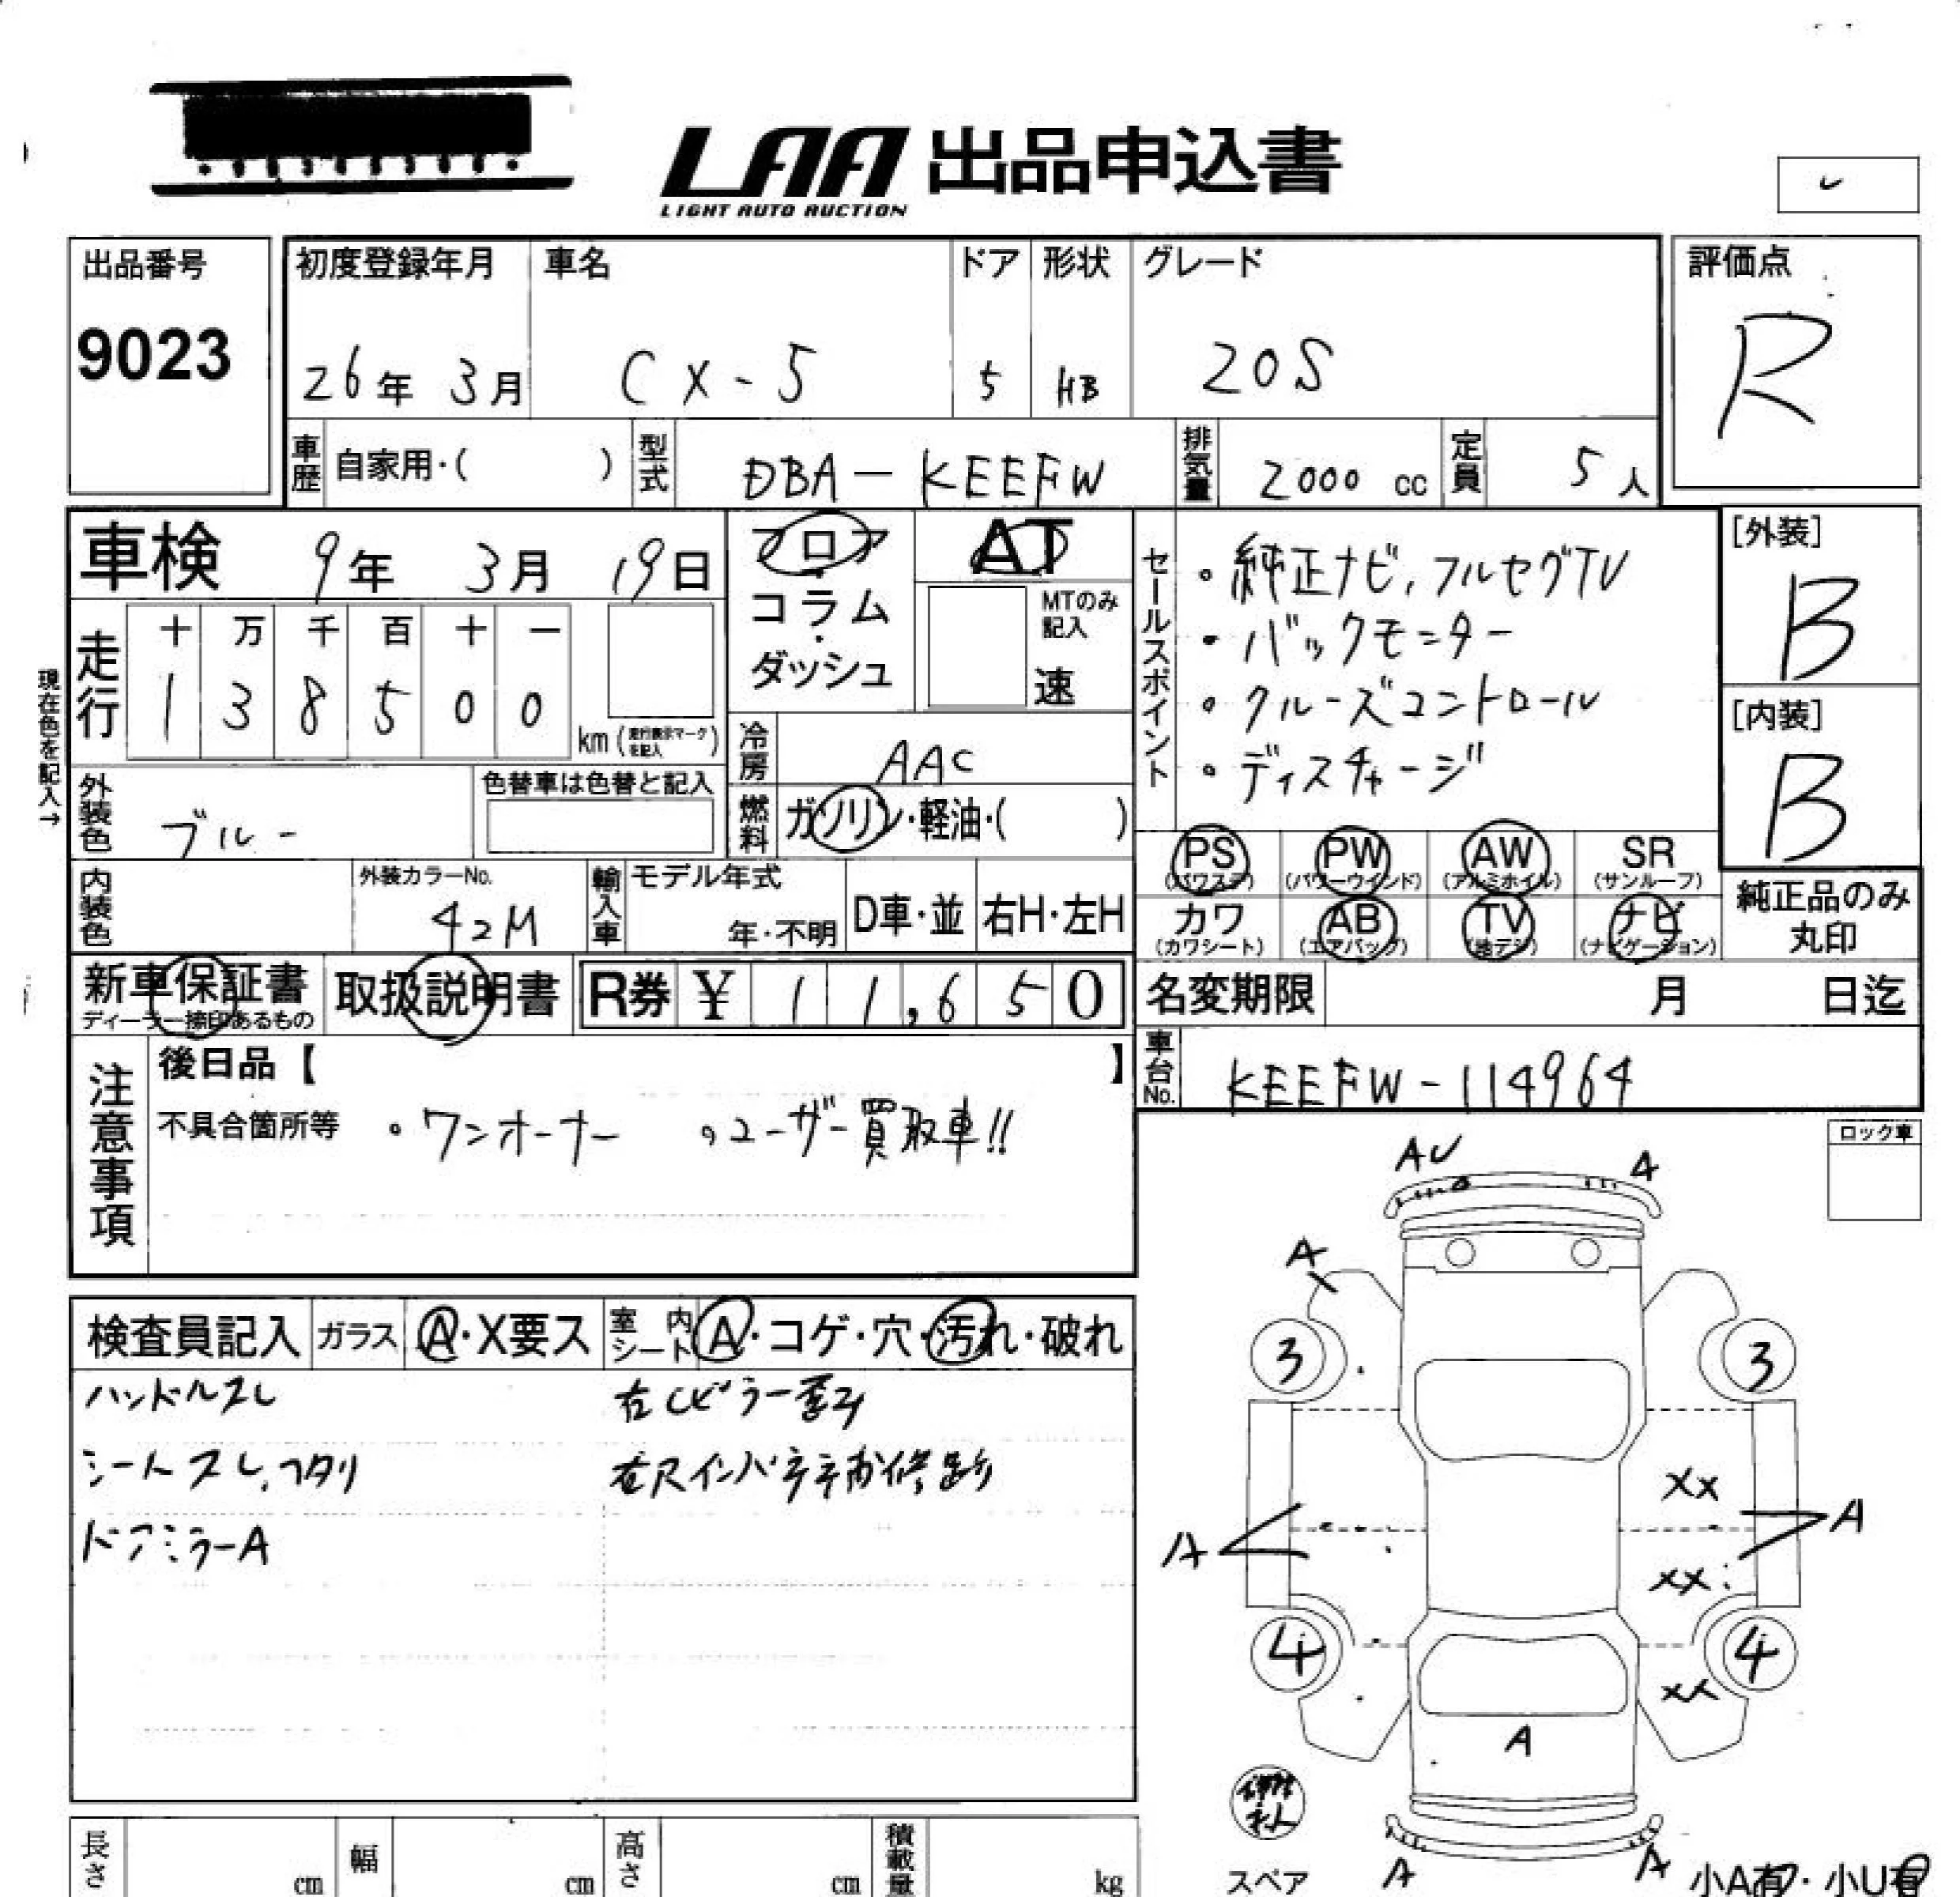 LAA 出品申込書
LIGHT AUTO AUCTION
出品番号
9023
初度登録年月
26年 3月
車名
CX-5
ドア
5
形状
HB
グレード
20S
評価点
R
車歴 自家用・( )
型式 DBA-KEEFW
排気量 2000 cc
定員 5人
車検 9年 3月 19日
フロア・コラム・ダッシュ
AT
MTのみ記入
速
セールスポイント
・純正ナビ,フルセグTV
・バックモニター
・クルーズコントロール
・ディスチャージ
[外装]
B
[内装]
B
現在色を記入→
走行
十 万 千 百 十 一
1 3 8 5 0 0
km(走行表示マークを記入)
冷房 AAC
燃料 ガソリン・軽油・( )
外装色 ブルー
色替車は色替と記入
内装色
外装カラーNo.
42M
輸入車
モデル年式
年・不明
D車・並
右H・左H
PS (パワステ)
PW (パワーウインド)
AW (アルミホイル)
SR (サンルーフ)
カワ (カワシート)
AB (エアバッグ)
TV (地デジ)
ナビ (ナビゲーション)
純正品のみ丸印
新車保証書
ディーラー捺印あるもの
取扱説明書
R券 ¥ 11,650
名変期限 月 日迄
車台No. KEEFW-114964
注意事項
後日品【 】
不具合箇所等 ・ワンオーナー ・ユーザー買取車!!
ロック車
AU A
A
3 3
XX
A A
XX
4 4
XX
A
A A
スペア
小A有・小U有
検査員記入
ガラス A・X要ス
室内シート A・コゲ・穴・汚れ・破れ
ハンドルスレ
右Cピラー歪み
シートスレ,ヘタリ
ドアミラーA
長さ cm
幅 cm
高さ cm
積載量 kg